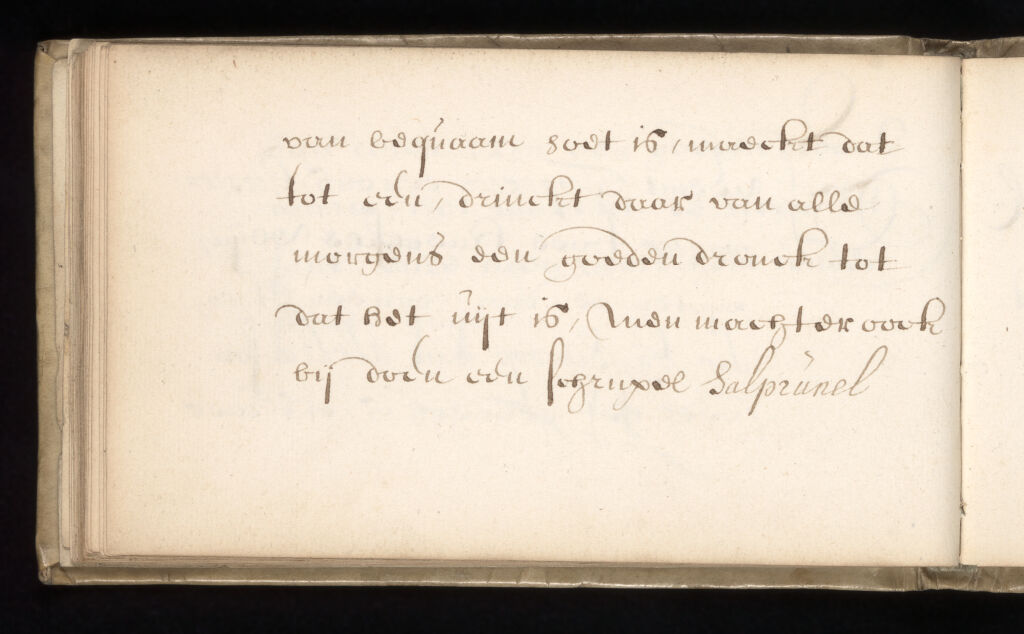 van bequaam soet is, maeckt dat
tot een, drinckt daar van alle
morgens een goeden dronck tot
dat het uijt is, Men mach ter oock
bij doen een schrupel Salprunel